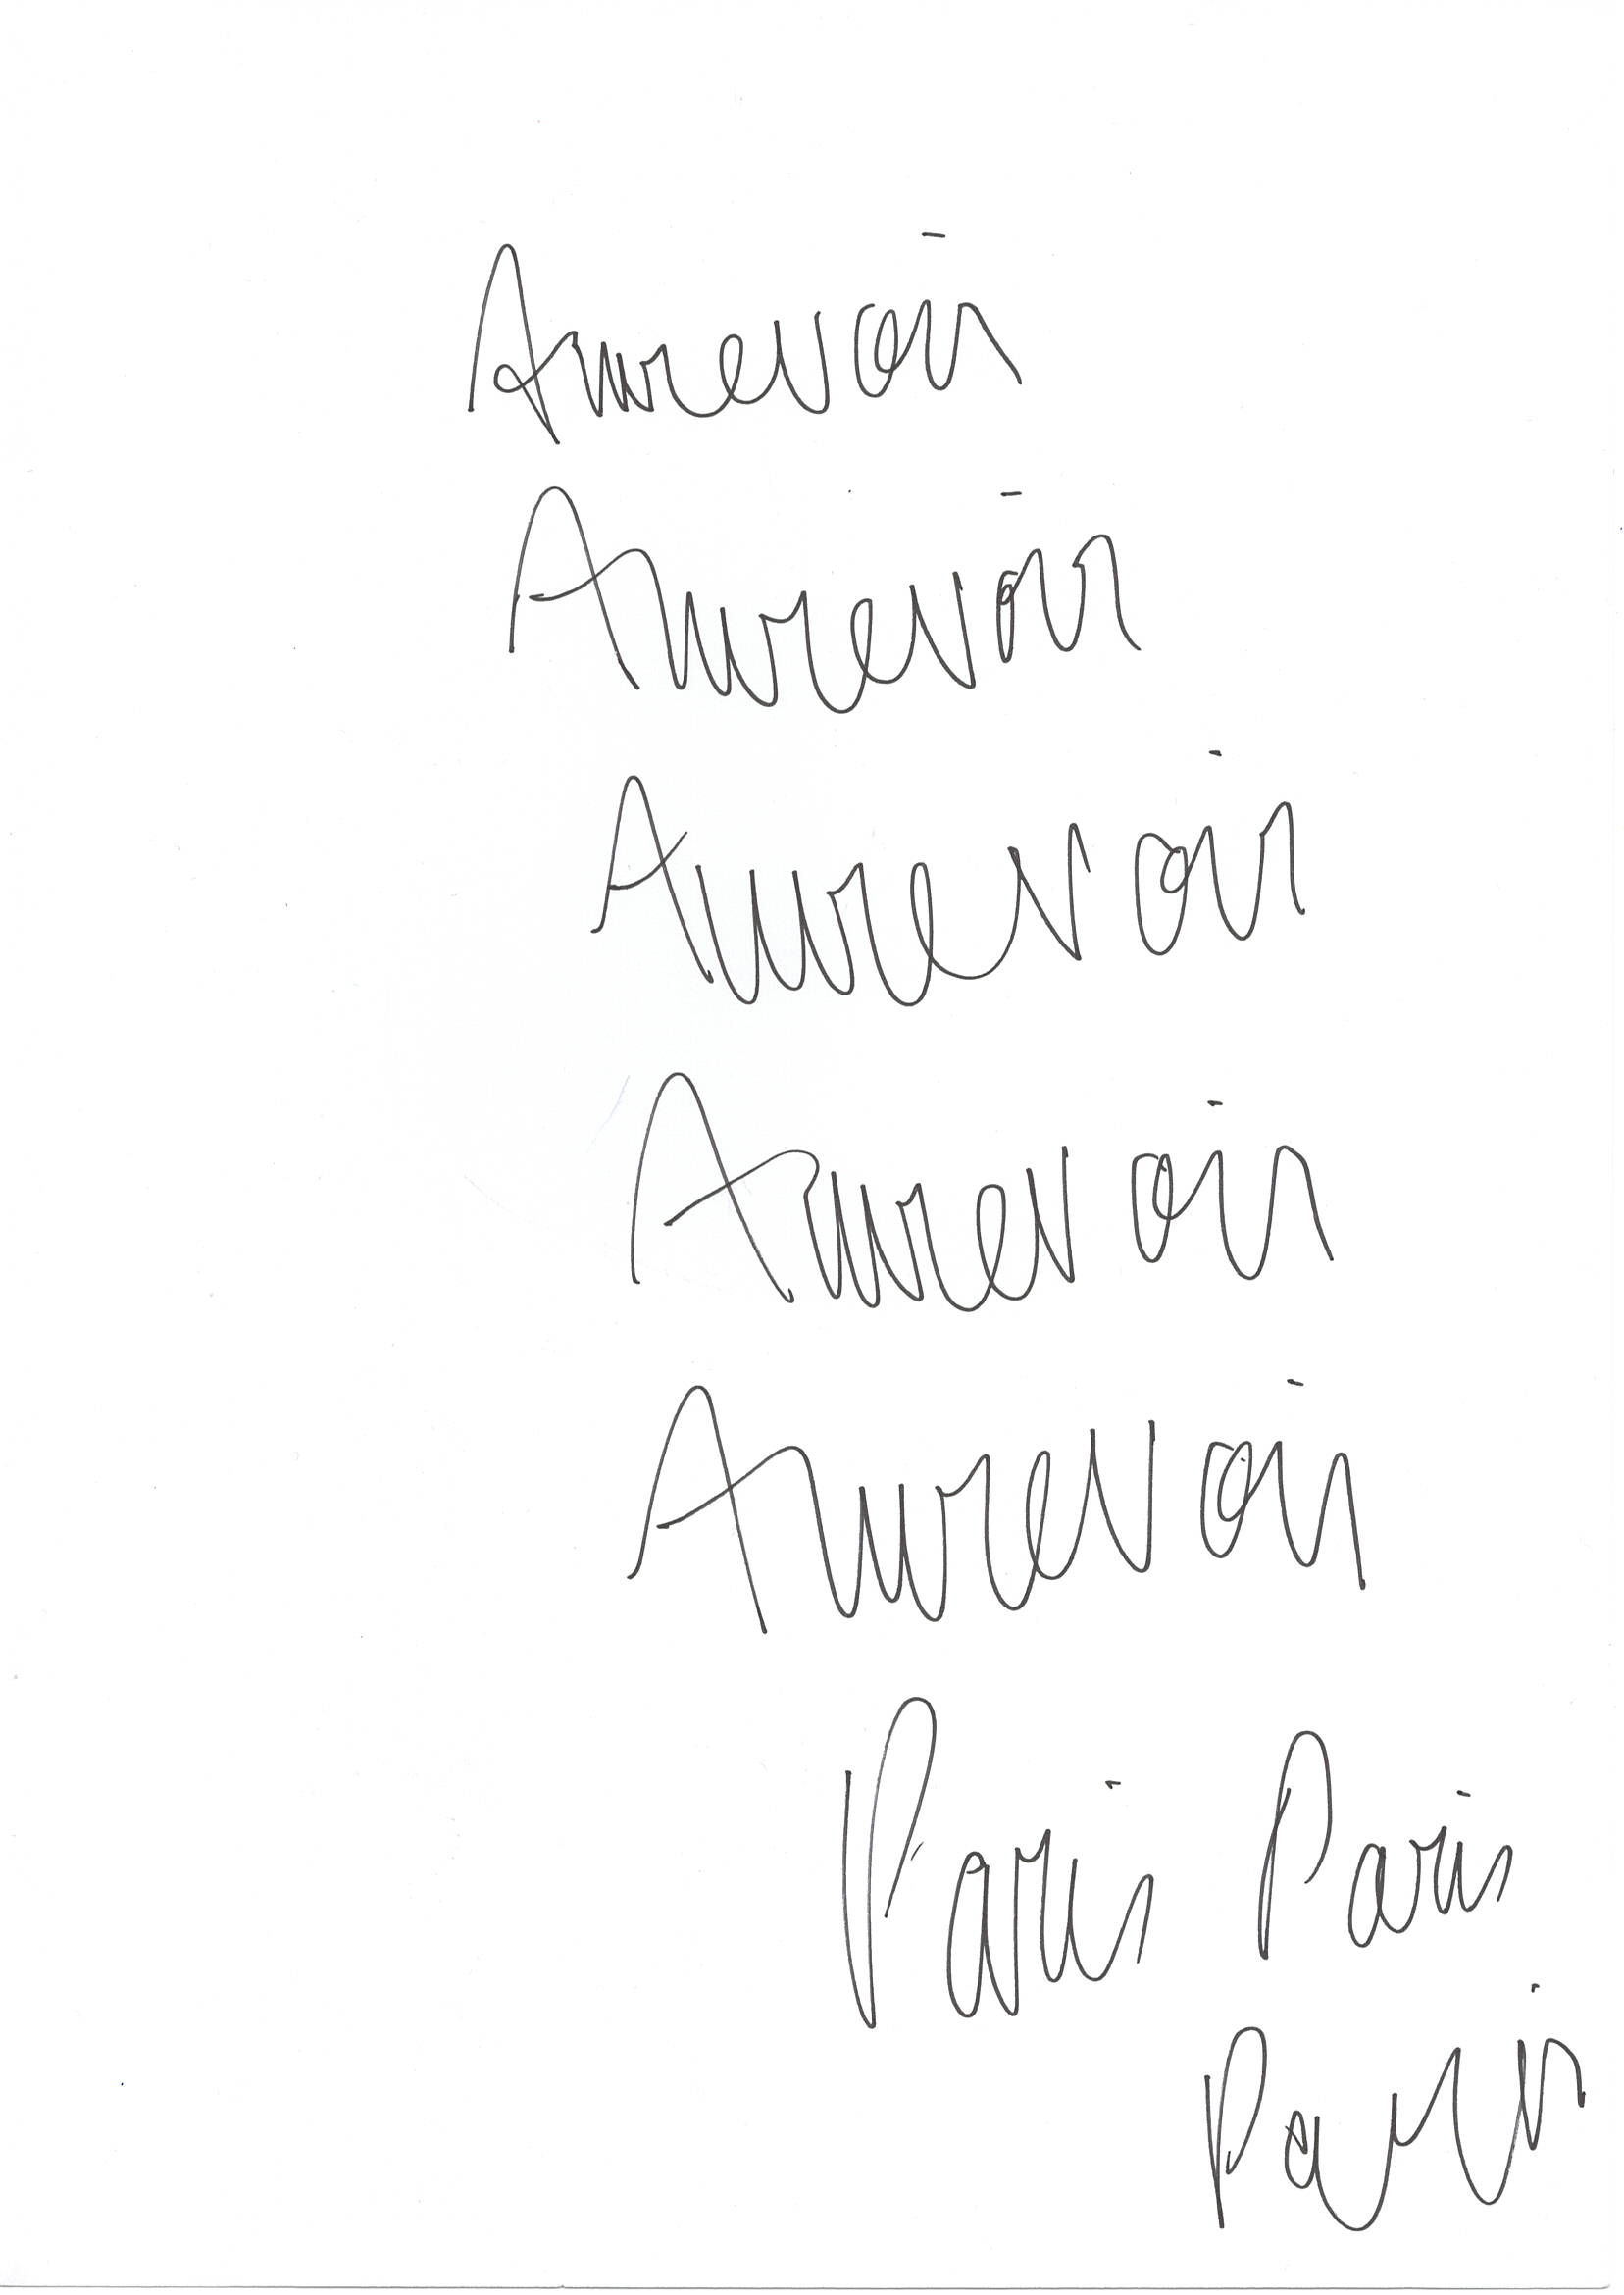 Aurevoir
Aurevoir
Aurevoir
Aurevoir
Aurevoir
Paris Paris
Paris